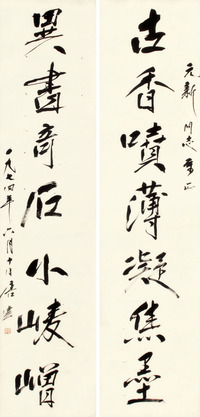 元新同志属正
古香噴薄凝焦墨
異書奇石小崚嶒
一九七四年六月十日